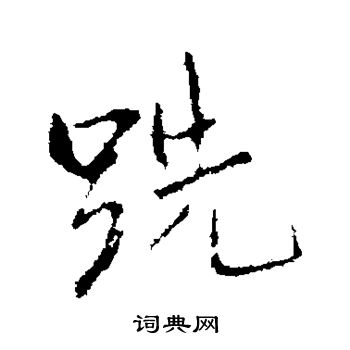 跣
词典网